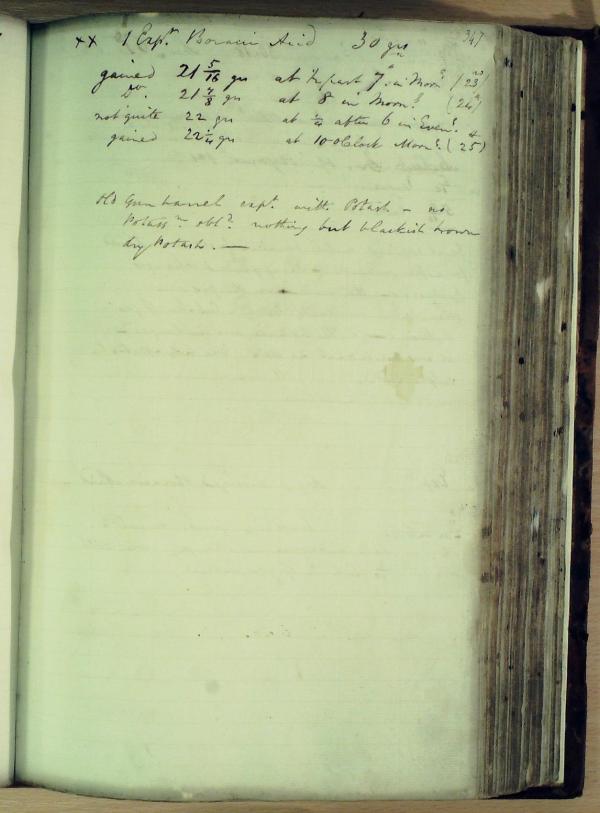 347
xx 1 Expt. Boracic Acid 30 grs
gained 21 5/16 grs at 1/2 past 7 in Morng. (23)
Do. 21 7/8 grs at 8 in Morng. (24)
not quite 22 grs at 1/4 after 6 in Eveng. "
gained 22 1/4 grs at 10 oClock Morng. (25)
old Gun barrel expt. with Potash – no
Potassm. obtd. nothing but blackish brown
dry Potash. —